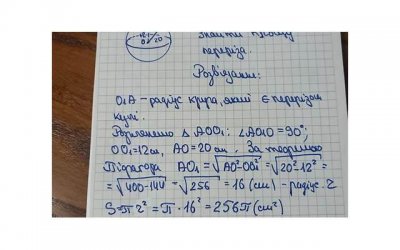 Знайти площу
O₁ 20
перерізa.
Розв'язання:
O₁A - радіус круга, який є перерізом
кулі.
Розглянемо △ AOO₁: ∠AO₁O = 90°;
OO₁ = 12см, AO = 20см. За теоремою
Піфагора AO₁ = √AO²-OO₁² = √20²-12² =
= √400-144 = √256 = 16 (см) - радіус. r
S = πr² = π · 16² = 256π (см²)